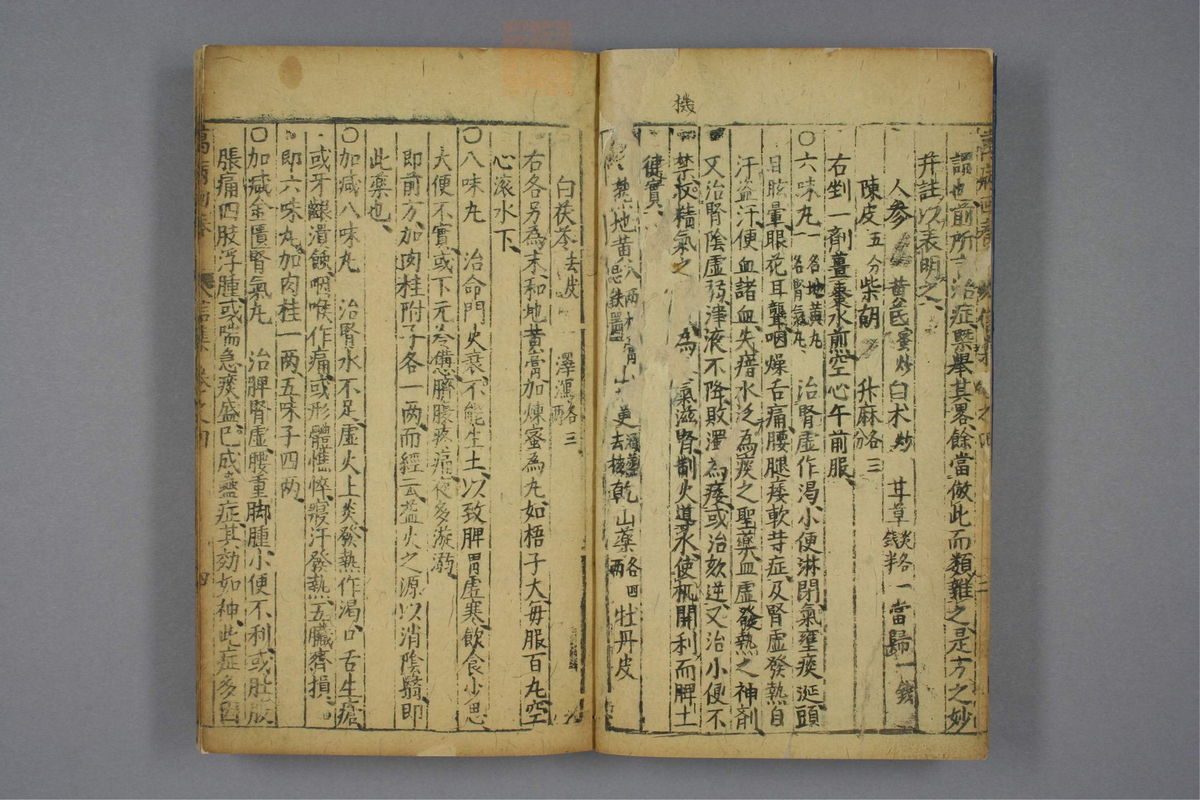 機
謂也前所 治症槩舉其畧餘當倣此而類雜之是方之妙
并註以表明之
人參 黃芪蜜炒 白术炒 甘草炙各一錢半 當歸一錢
陳皮五分 柴胡 升麻各三分
右剉一劑薑棗水煎空心午前服
〇六味丸一名地黃丸一名腎氣丸 治腎虛作渴小便淋閉氣壅痰涎頭
目眩暈眼花耳聾咽燥舌痛腰腿痿軟等症及腎虛發熱自
汗盜汗便血諸血失瘖水泛為痰之聖藥血虛發熱之神劑
又治腎陰虛弱津液不降敗濁為痰或治欬逆又治小便不
禁收精氣之 為 氣滋腎制火導水使机關利而脾土
健實
熟地黃八兩 忌鐵器 山茱萸酒蒸去核 乾山藥各四兩 牡丹皮
白茯苓去皮 澤瀉各三兩
右各另為末和地黃膏加煉蜜為丸如梧子大每服百丸空
心滚水下
〇八味丸 治命門火衰不能生土以致脾胃虛寒飲食少思
大便不實或下元冷憊臍腹疼痛夜多漩溺
即前方加肉桂附子各一兩而經云益火之源以消陰翳即
此藥也
〇加減八味丸 治腎水不足虛火上炎發熱作渴口舌生瘡
或牙齦潰蝕咽喉作痛或形體憔悴寢汗發熱五臟齊損
即六味丸加肉桂一兩五味子四兩
〇加减金匱腎氣丸 治脾腎虛腰重脚腫小便不利或肚腹
脹痛四肢浮腫或喘急痰盛已成蠱症其効如神此症多因